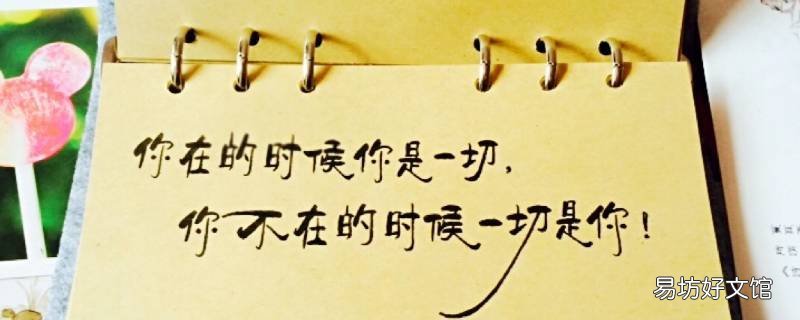 你在的时候你是一切，
你不在的时候一切是你！
易坊好文馆